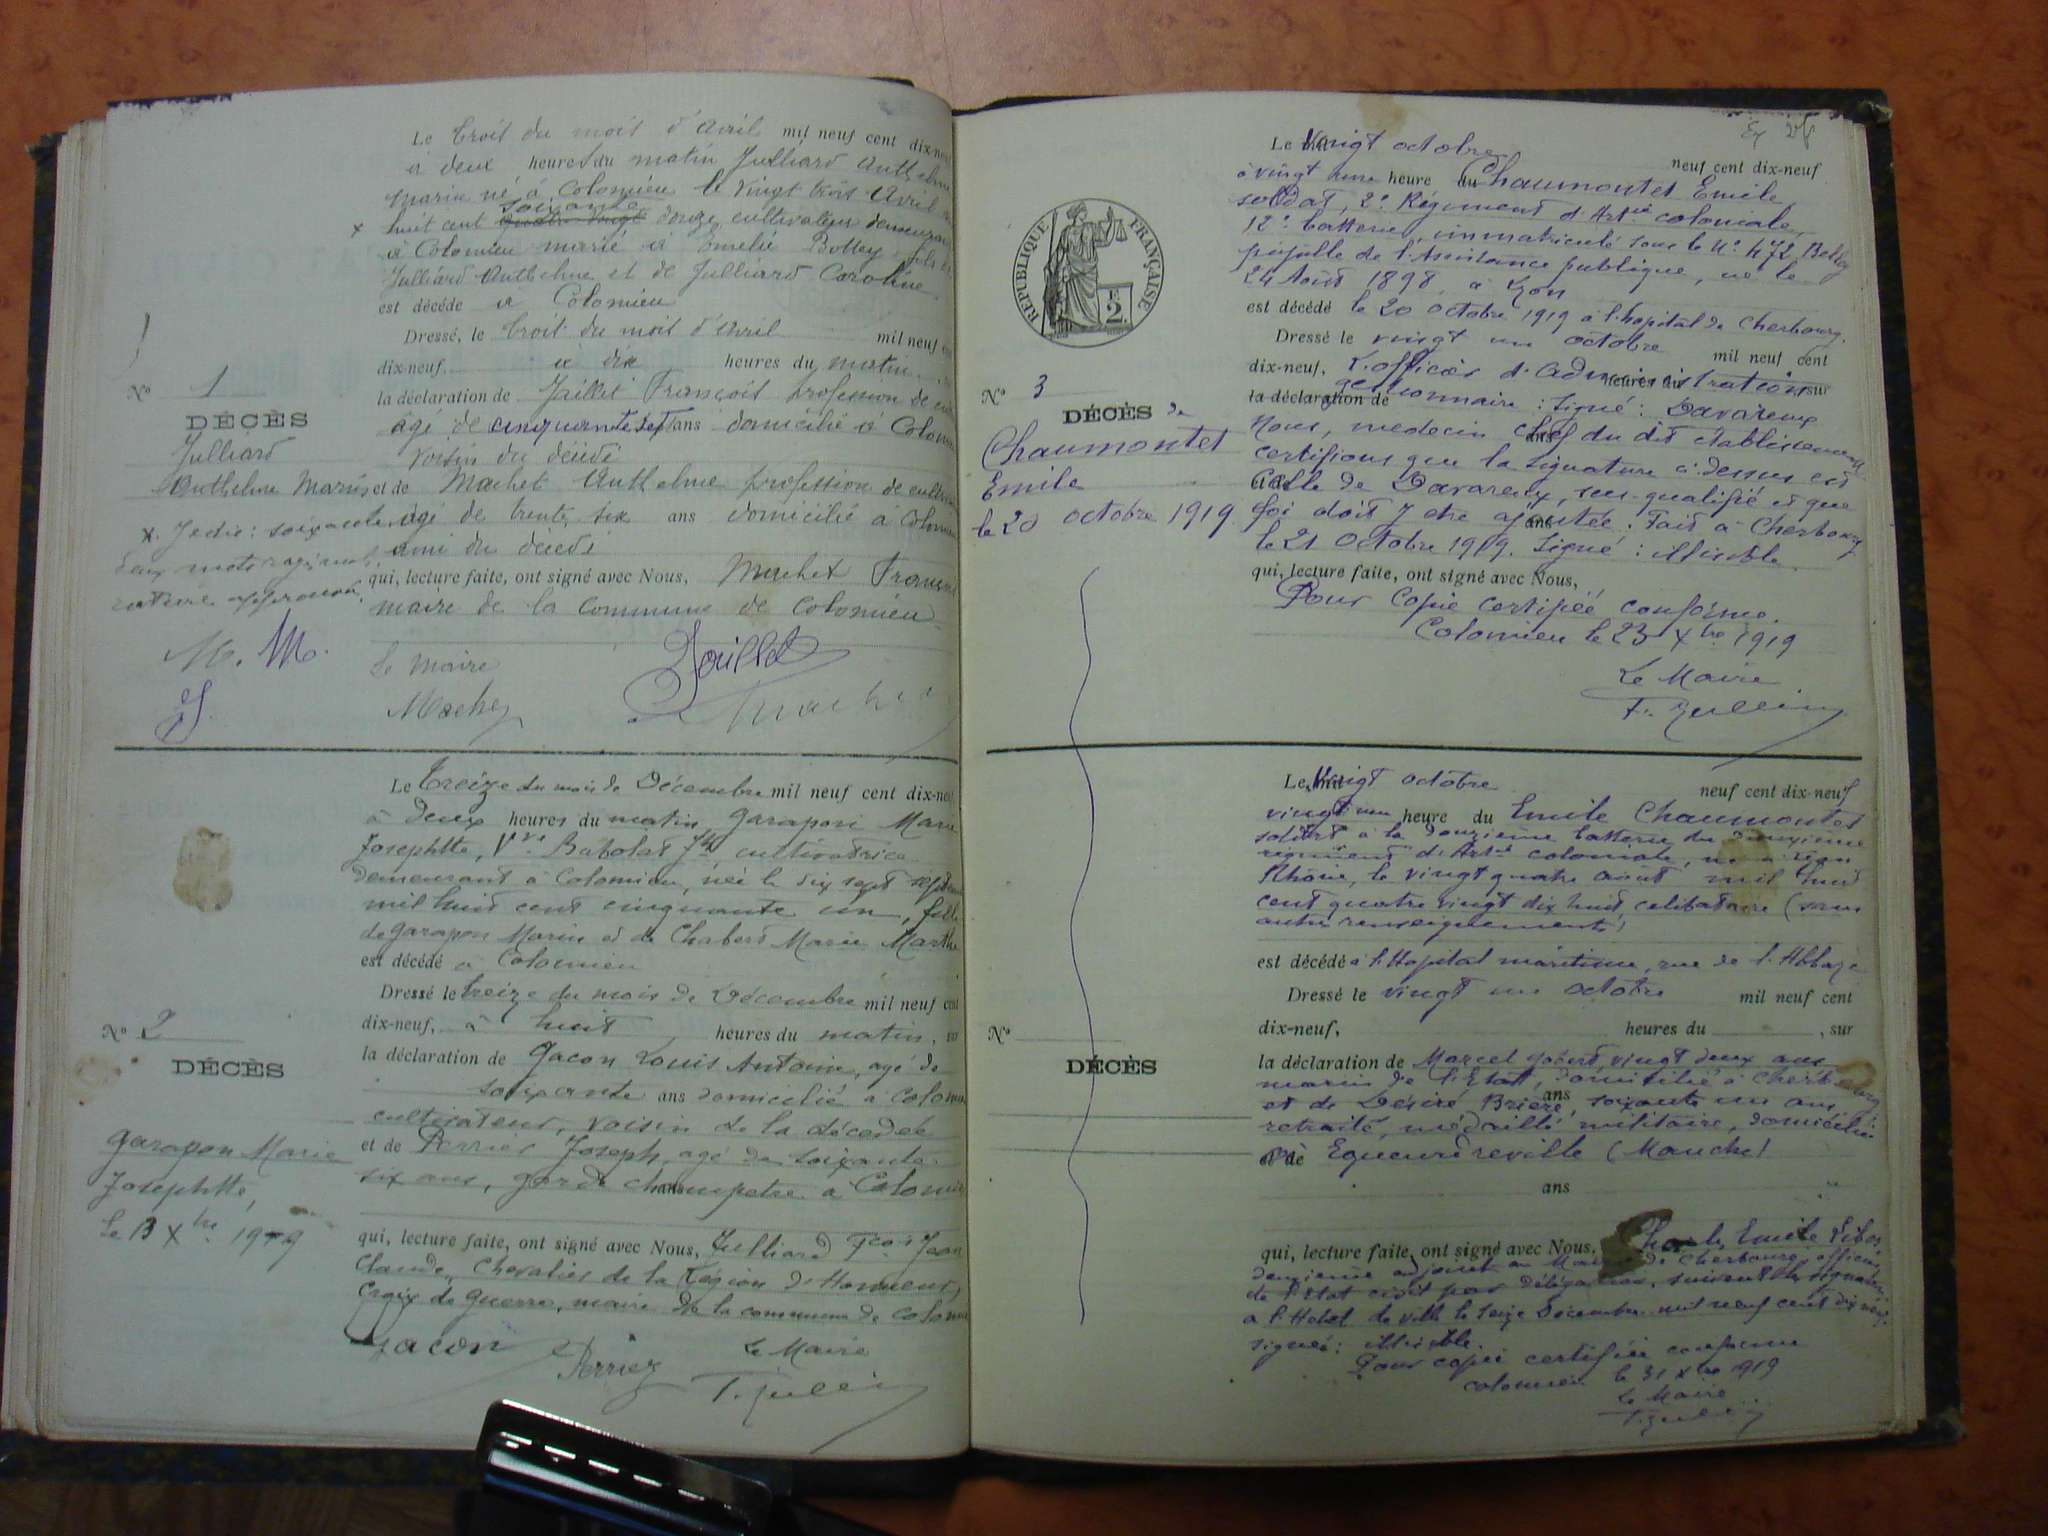 Le trois du mois d'Avril mil neuf cent dix-neuf
à deux heures du matin Julliard Anthelme
Marin né à Colomieu le vingt trois Avril
x huit cent soixante quatre vingt douze cultivateur demeurant
à Colomieu marié à Emélie Bottey fils de
Julliard Anthelme et de Julliard Caroline
est décédé à Colomieu
Dressé, le trois du mois d'Avril mil neuf cent
dix-neuf, à dix heures du matin
la déclaration de Jaillet François profession de
âgé de cinquante sept ans domicilié à Colomieu
voisin du décédé
et de Machet Anthelme profession de cultivateur
âgé de trente six ans domicilié à Colomieu
ami du décédé
qui, lecture faite, ont signé avec Nous, Machet François
maire de la commune de Colomieu
Le Maire
Machet
Jaillet
Machet
No 1
DÉCÈS
Julliard
Anthelme Marin
x. Je dis : soixante
deux mots rayés nuls
rature approuvé
M. M.
J
Le treize du mois de Décembre mil neuf cent dix-neuf
à deux heures du matin Garapon Marie
Josephtte, Vve Babolat Jh, cultivatrice
demeurant à Colomieu, née le dix sept
mil huit cent cinquante un, fille
de Garapon Marin et de Chabert Marie Marthe
est décédé à Colomieu
Dressé le treize du mois de Décembre mil neuf cent
dix-neuf, à huit heures du matin, sur
la déclaration de Gacon Louis Antoine, agé de
soixante ans domicilié à Colomieu
cultivateur, voisin de la décédée
et de Perrier Joseph, agé de soixante
six ans, garde champetre à Colomieu
qui, lecture faite, ont signé avec Nous, Julliard Fçois Jean
Claude, Chevalier de la Légion d'Honneur,
Croix de Guerre, maire de la commune de Colomieu
Gacon Perrier Le Maire
No 2
DÉCÈS
Garapon Marie
Josephtte,
le 13 Xbre 1919
RÉPUBLIQUE FRANÇAISE
2
Le vingt octobre neuf cent dix-neuf
à vingt une heure du Chaumontet Emile,
soldat, 2e Régiment d'Artie coloniale,
12e batterie, immatriculé sous le No 472 Belley
pupille de l'Assistance publique, né le
24 Août 1898, à Lyon
est décédé le 20 octobre 1919 à l'hopital de Cherbourg.
Dressé le vingt un octobre mil neuf cent
dix-neuf, L'officier d'administration heures du sur
la déclaration de gestionnaire : Signé : Davareux
Nous, medecin chef du dit établissement
certifions que la signature ci-dessus est
celle de Davareux, sus-qualifié et que
foi doit y etre ajoutée. Fait à Cherbourg
le 21 Octobre 1919. Signé : illisible.
qui, lecture faite, ont signé avec Nous,
Pour Copie certifiée conforme.
Colomieu le 23 Xbre 1919
Le Maire
No 3
DÉCÈS de
Chaumontet
Emile
le 20 octobre 1919
Le vingt octobre neuf cent dix-neuf
vingt une heure du Emile Chaumontet
soldat à la douzième batterie du deuxième
régiment d'Artie coloniale, né à Lyon
Rhône, le vingt quatre aout mil huit
cent quatre vingt dix huit, celibataire (sans
autre renseignements)
est décédé à l'Hopital maritime, rue de l'Abbaye
Dressé le vingt un octobre mil neuf cent
dix-neuf, heures du , sur
la déclaration de Marcel Gobert vingt deux ans
marin de l'Etat, domicilié à Cherbourg
et de Désiré Briere, soixante un ans
retraité, médaillé militaire, domicilié
et de à Equeurdreville (Manche)
ans
qui, lecture faite, ont signé avec Nous, Charles Emile
deuxieme adjoint au Maire de Cherbourg, officier
de l'Etat civil par délégation, suivent les signatures
à l'Hotel de ville le seize Décembre mil neuf cent dix neuf
signé : illisible.
Pour copie certifiée conforme
Colomieu le 31 Xbre 1919
Le Maire
No
DÉCÈS